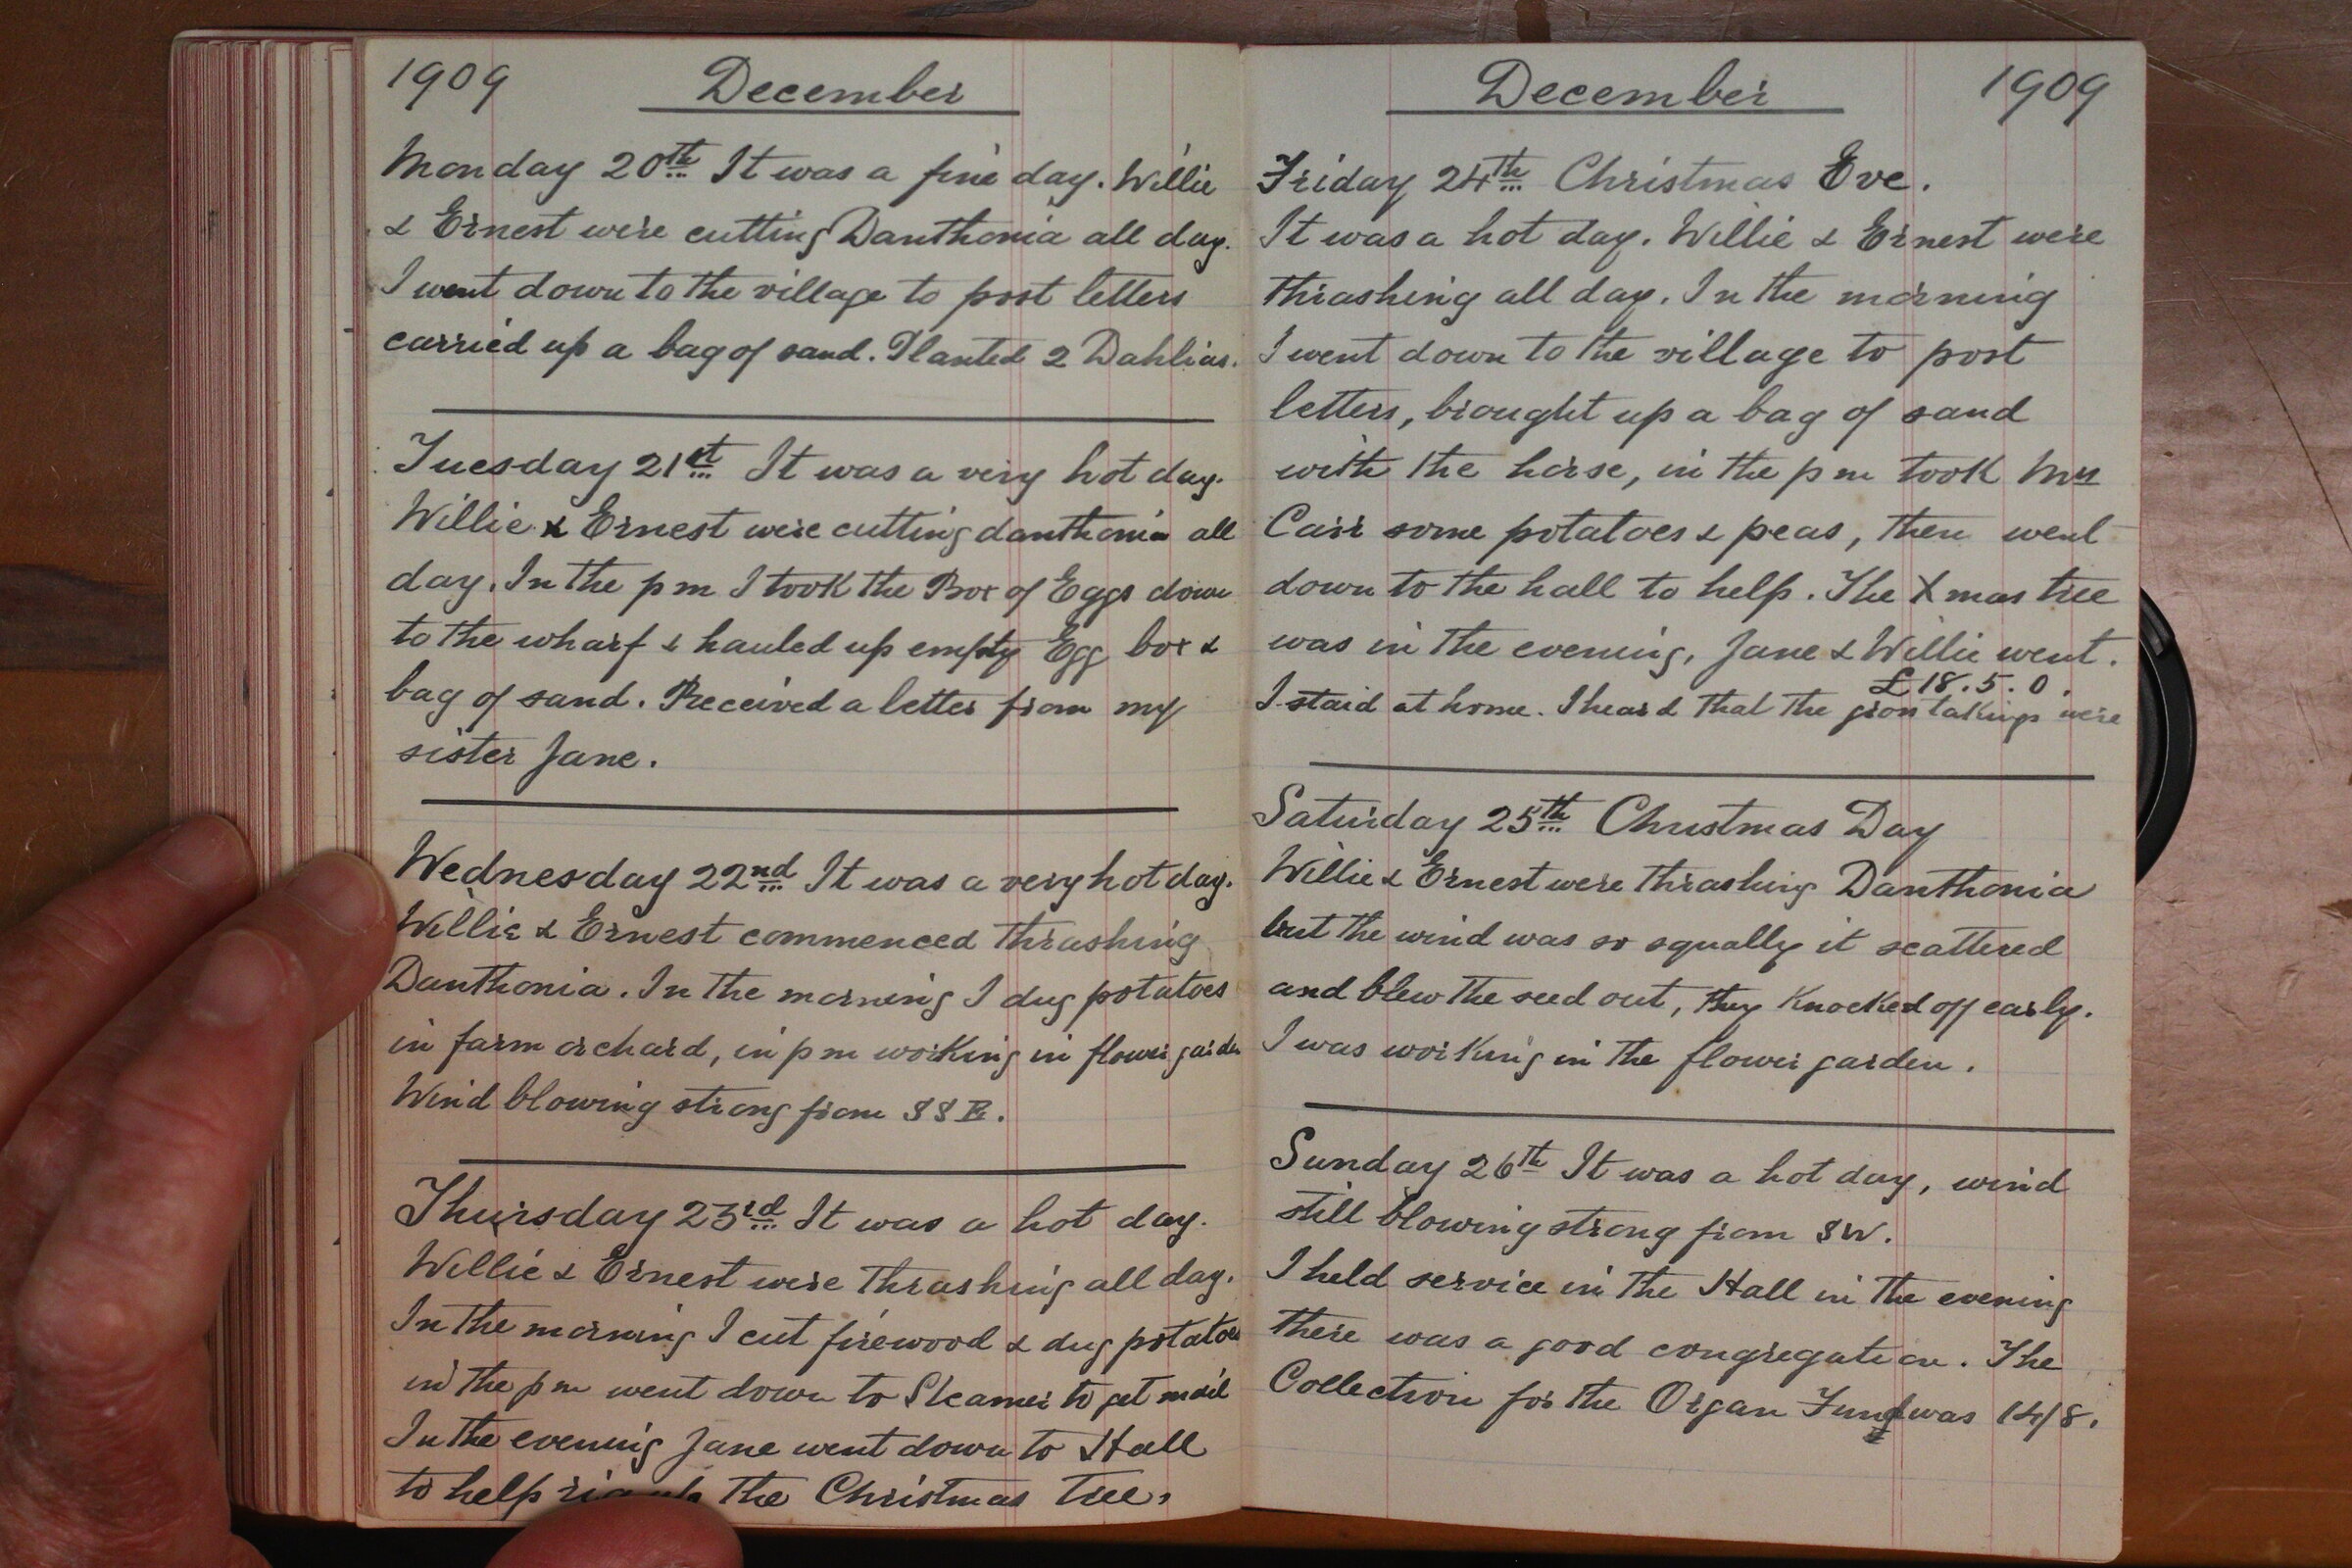 1909 December
Monday 20th It was a fine day. Willie
& Ernest were cutting Danthonia all day.
I went down to the village to post letters
carried up a bag of sand. Planted 2 Dahlias.
Tuesday 21st It was a very hot day.
Willie & Ernest were cutting danthonia all
day. In the pm I took the Box of Eggs down
to the wharf & hauled up empty Egg box &
bag of sand. Received a letter from my
sister Jane.
Wednesday 22nd It was a very hot day.
Willie & Ernest commenced thrashing
Danthonia. In the morning I dug potatoes
in farm orchard, in pm working in flower garden
Wind blowing strong from SSE.
Thursday 23rd It was a hot day.
Willie & Ernest were thrashing all day.
In the morning I cut firewood & dug potatoes
in the pm went down to Steamer to get mail
In the evening Jane went down to Hall
to help the Christmas tree.
December 1909
Friday 24th Christmas Eve.
It was a hot day. Willie & Ernest were
thrashing all day. In the morning
I went down to the village to post
letters, brought up a bag of sand
with the horse, in the pm took Mrs
Carr some potatoes & peas, then went
down to the hall to help. The Xmas tree
was in the evening, Jane & Willie went.
£18.5.0.
I staid at home. I heard that the takings were
Saturday 25th Christmas Day
Willie & Ernest were thrashing Danthonia
but the wind was so squally it scattered
and blew the seed out, they knocked off early.
I was working in the flower garden.
Sunday 26th It was a hot day, wind
still blowing strong from SW.
I held service in the Hall in the evening
there was a good congregation. The
Collection for the Organ Fund was 14/8.